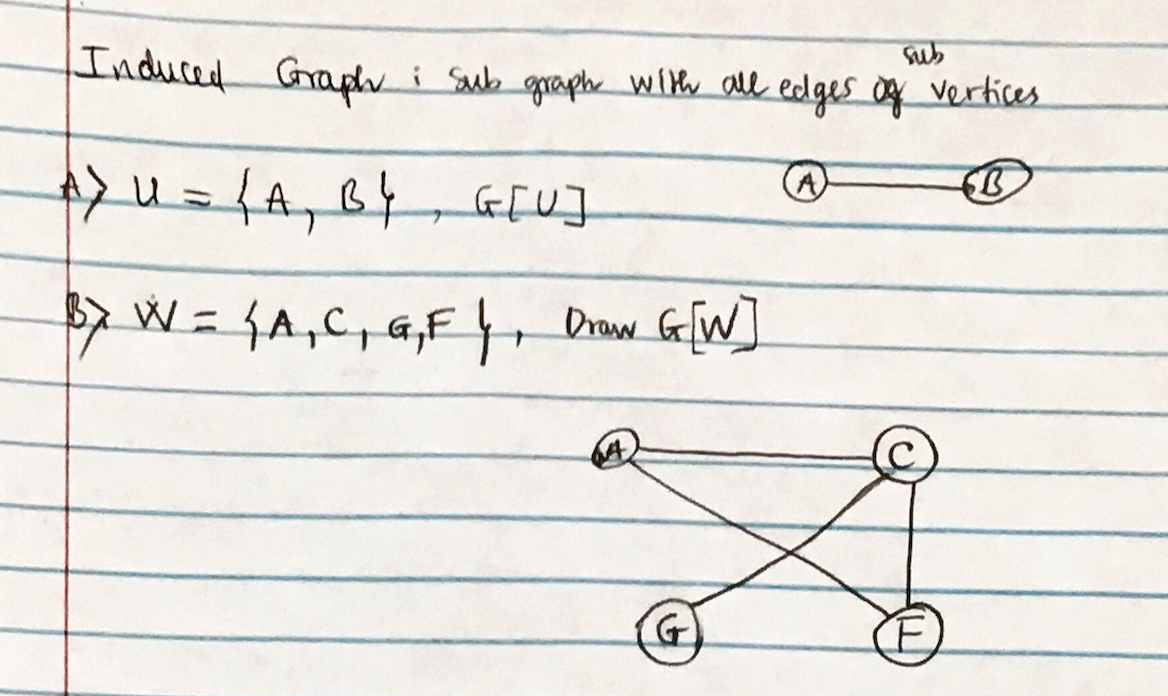 sub
Induced Graph : sub graph with all edges of vertices
A> U = {A, B} , G[U]
A B
B> W = {A, C, G, F} , Draw G[W]
A C
G F